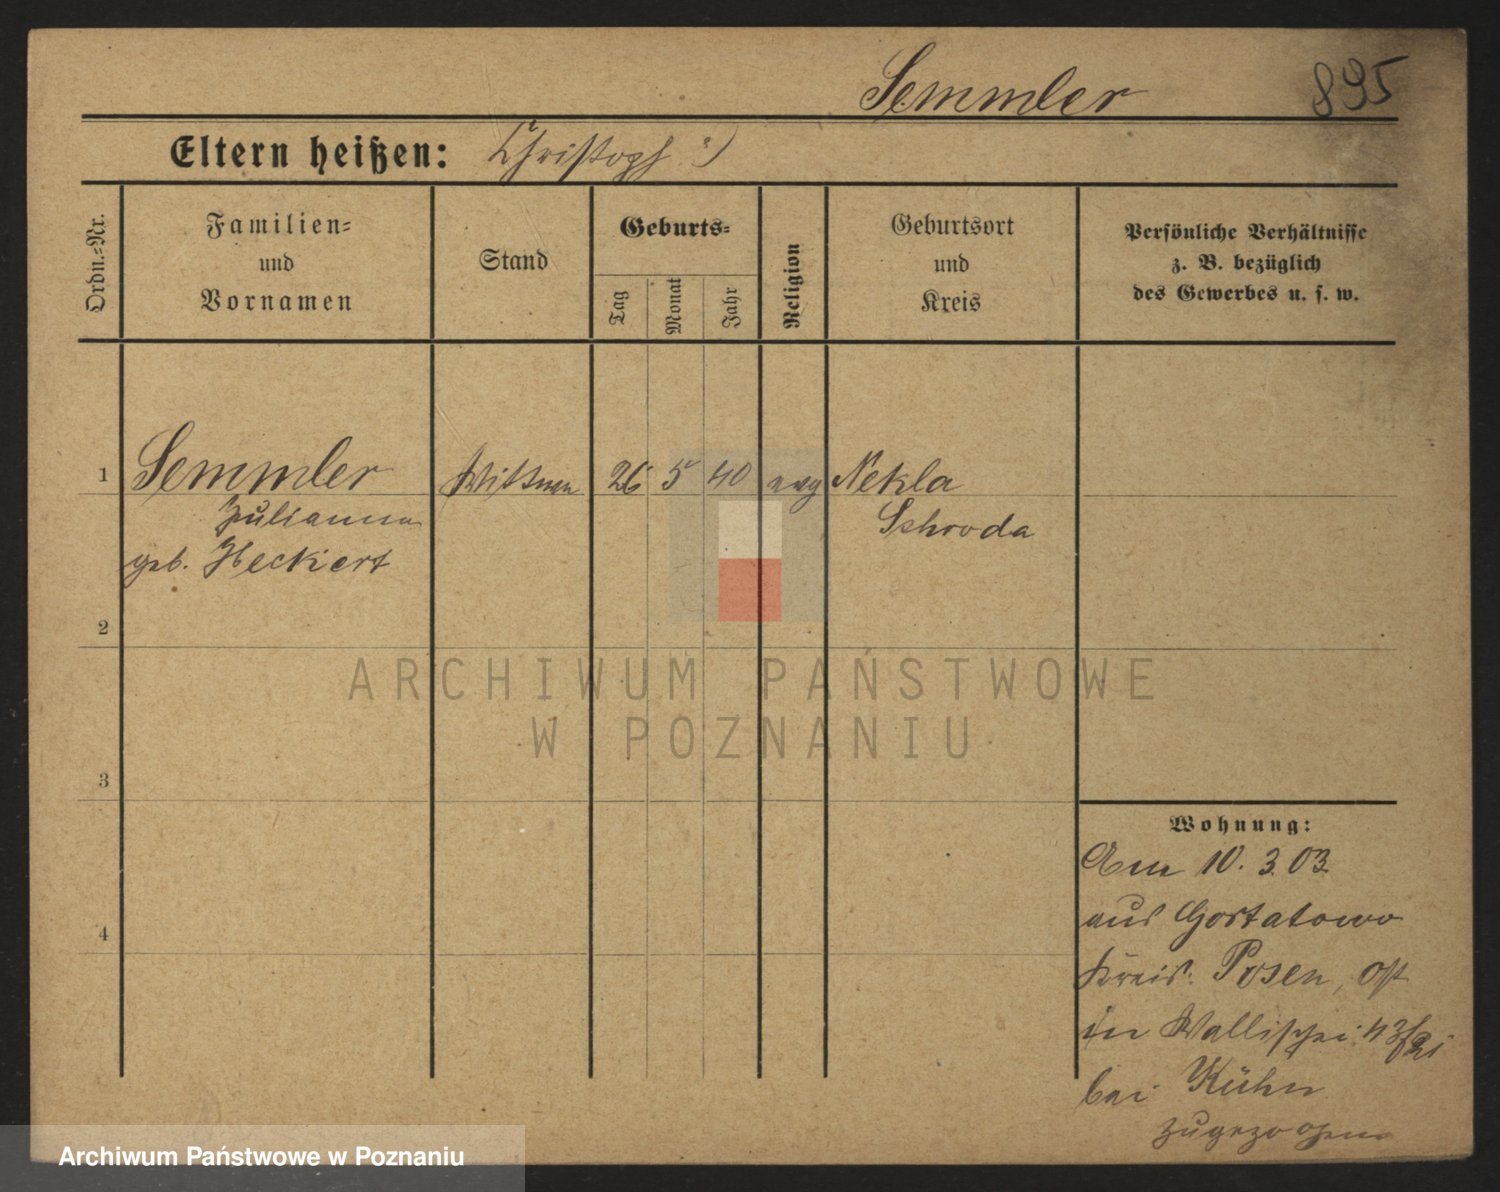 Semmler 895
Eltern heißen: Christoph :)
Ordn.-Nr.
Familien-
und
Vornamen
Stand
Geburts-
Tag
Monat
Jahr
Religion
Geburtsort
und
Kreis
Persönliche Verhältnisse
z. B. bezüglich
des Gewerbes u. s. w.
1 Semmler Wittwe 26 5 40 evg Nekla
Julianna Schroda
geb. Heckert
2
ARCHIWUM PAŃSTWOWE
W POZNANIU
3
Wohnung:
Am 10. 3. 03
aus Gortatowo
4
Kreis: Posen, Ost
in Wallischei 43
bei Kühn
zugezogen
Archiwum Państwowe w Poznaniu